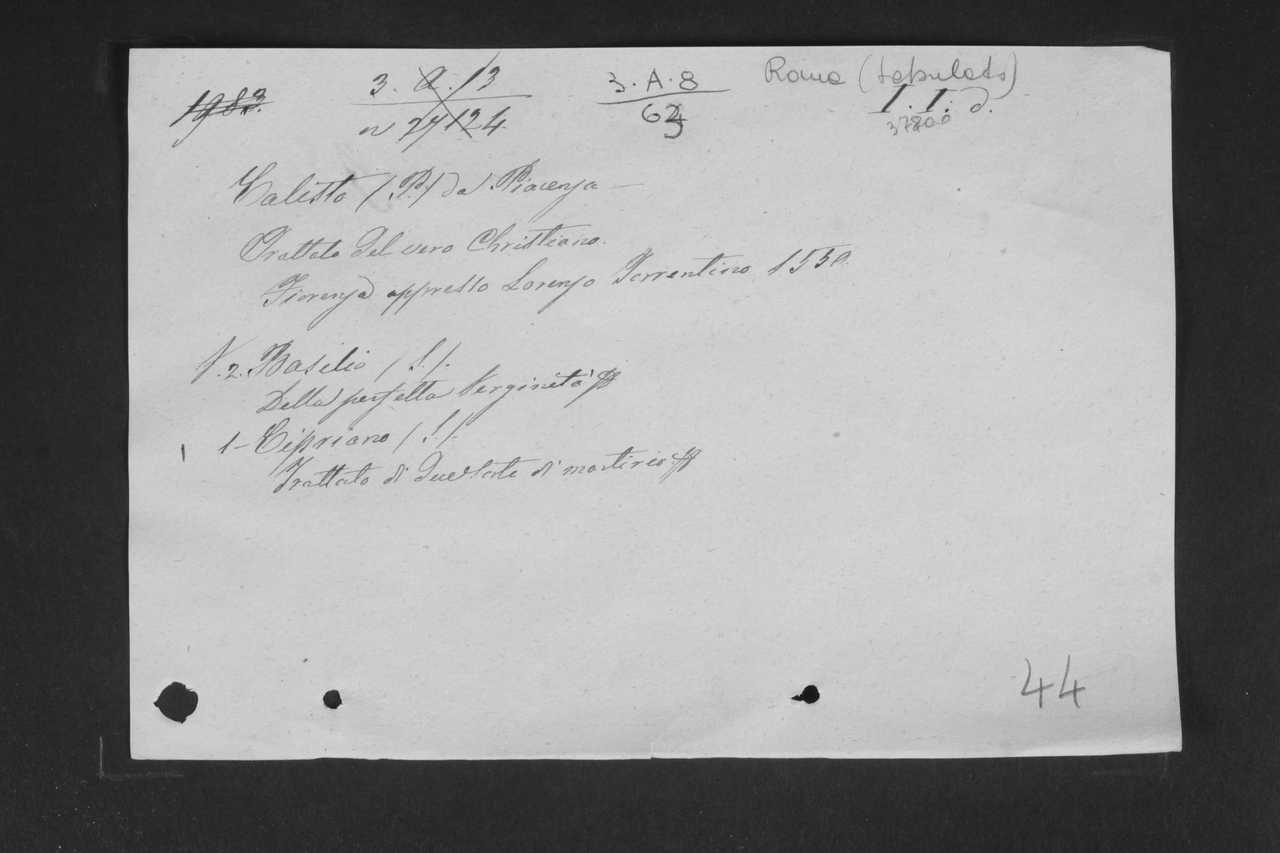 1983.
3. A. 13
n 77124.
3. A. 8
Roma (tabulato)
1. 1. d.
37800
Calisto (P.) da Piacenza —
Trattato del vero Christiano.
Fiorenza appresso Lorenzo Torrentino 1550.
N. 2. Basilio (S.).
Della perfetta Verginità
1 - Cipriano (S.).
Trattato di due sorte di martirio
44